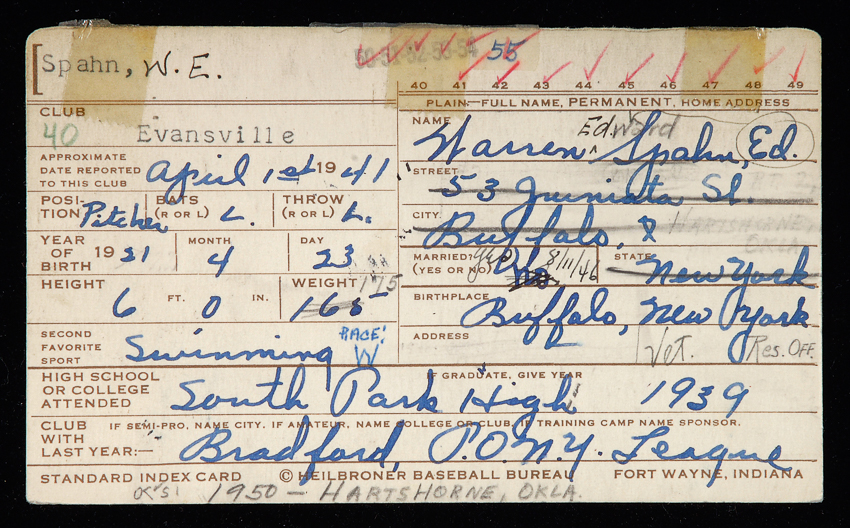 Spahn, W. E.
50-51-52-53-54 55
40 41 42 43 44 45 46 47 48 49
PLAIN—FULL NAME, PERMANENT, HOME ADDRESS
CLUB
40 Evansville
NAME Warren Edward Spahn, Ed.
APPROXIMATE
DATE REPORTED
TO THIS CLUB April 1st 1941
STREET 53 Juniata St.
POSI-
TION Pitcher BATS (R OR L) L. THROW (R OR L) L.
CITY Buffalo, HARTSHORNE, OKLA
YEAR OF BIRTH 1921 MONTH 4 DAY 23
MARRIED? (YES OR NO) yes no 8/11/46 STATE New York
HEIGHT 6 FT. 0 IN. WEIGHT 165 175
BIRTHPLACE Buffalo, New York
SECOND
FAVORITE
SPORT Swimming RACE? W
ADDRESS Vet. Res. OFF.
HIGH SCHOOL
OR COLLEGE
ATTENDED South Park High IF GRADUATE, GIVE YEAR 1939
CLUB
WITH
LAST YEAR:—
IF SEMI-PRO, NAME CITY. IF AMATEUR, NAME COLLEGE OR CLUB. IF TRAINING CAMP NAME SPONSOR.
Bradford, P.O.N.Y. League
STANDARD INDEX CARD © HEILBRONER BASEBALL BUREAU FORT WAYNE, INDIANA
1950 — HARTSHORNE, OKLA.